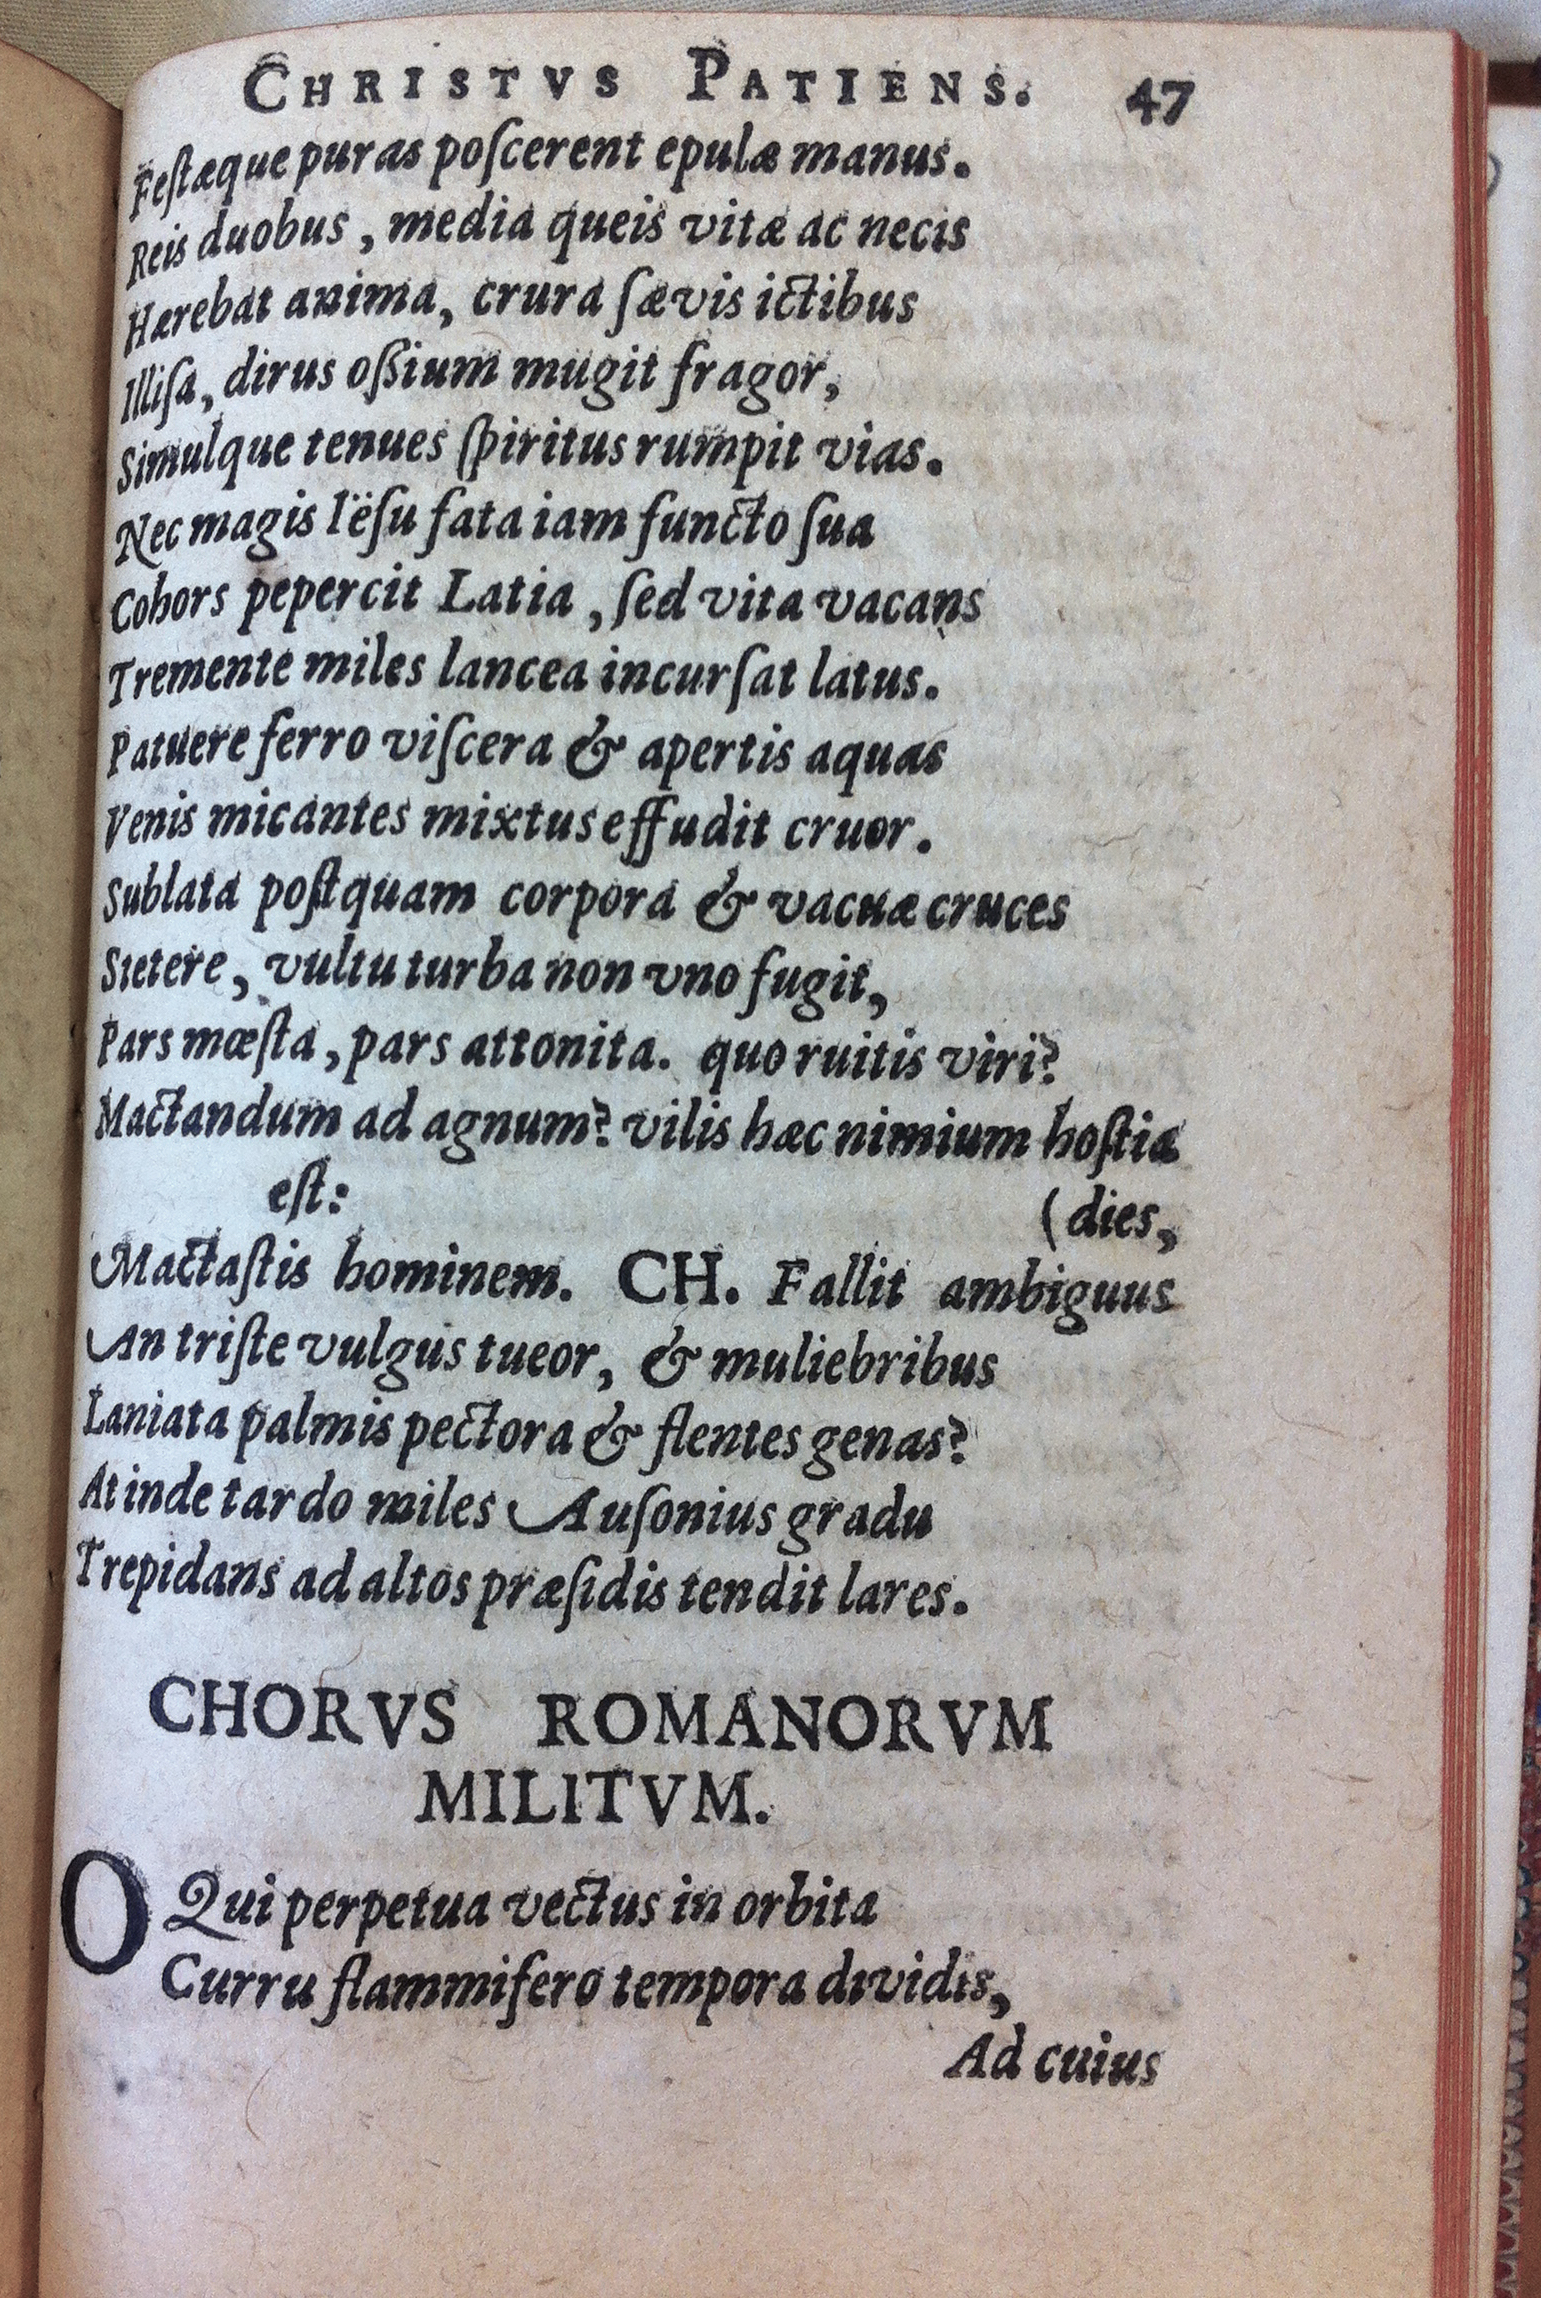 CHRISTVS PATIENS. 47
Feſtæque puras poſcerent epulæ manus.
Reis duobus, media queis vitæ ac necis
Hærebat anima, crura ſævis ictibus
Illiſa, dirus oſsium mugit fragor,
Simulque tenues ſpiritus rumpit vias.
Nec magis Iëſu fata iam functo ſua
Cohors pepercit Latia, ſed vita vacans
Tremente miles lancea incurſat latus.
Patuere ferro viſcera & apertis aquas
Venis micantes mixtus effudit cruor.
Sublata poſtquam corpora & vacuæ cruces
Stetere, vultu turba non vno fugit,
Pars mœſta, pars attonita. quo ruitis viri?
Mactandum ad agnum? vilis hæc nimium hoſtia
eſt: (dies,
Mactaſtis hominem. CH. Fallit ambiguus
An triſte vulgus tueor, & muliebribus
Laniata palmis pectora & flentes genas?
At inde tardo miles Auſonius gradu
Trepidans ad altos præſidis tendit lares.
CHORVS ROMANORVM
MILITVM.
O Qui perpetua vectus in orbita
Curru flammifero tempora dividis,
Ad cuius